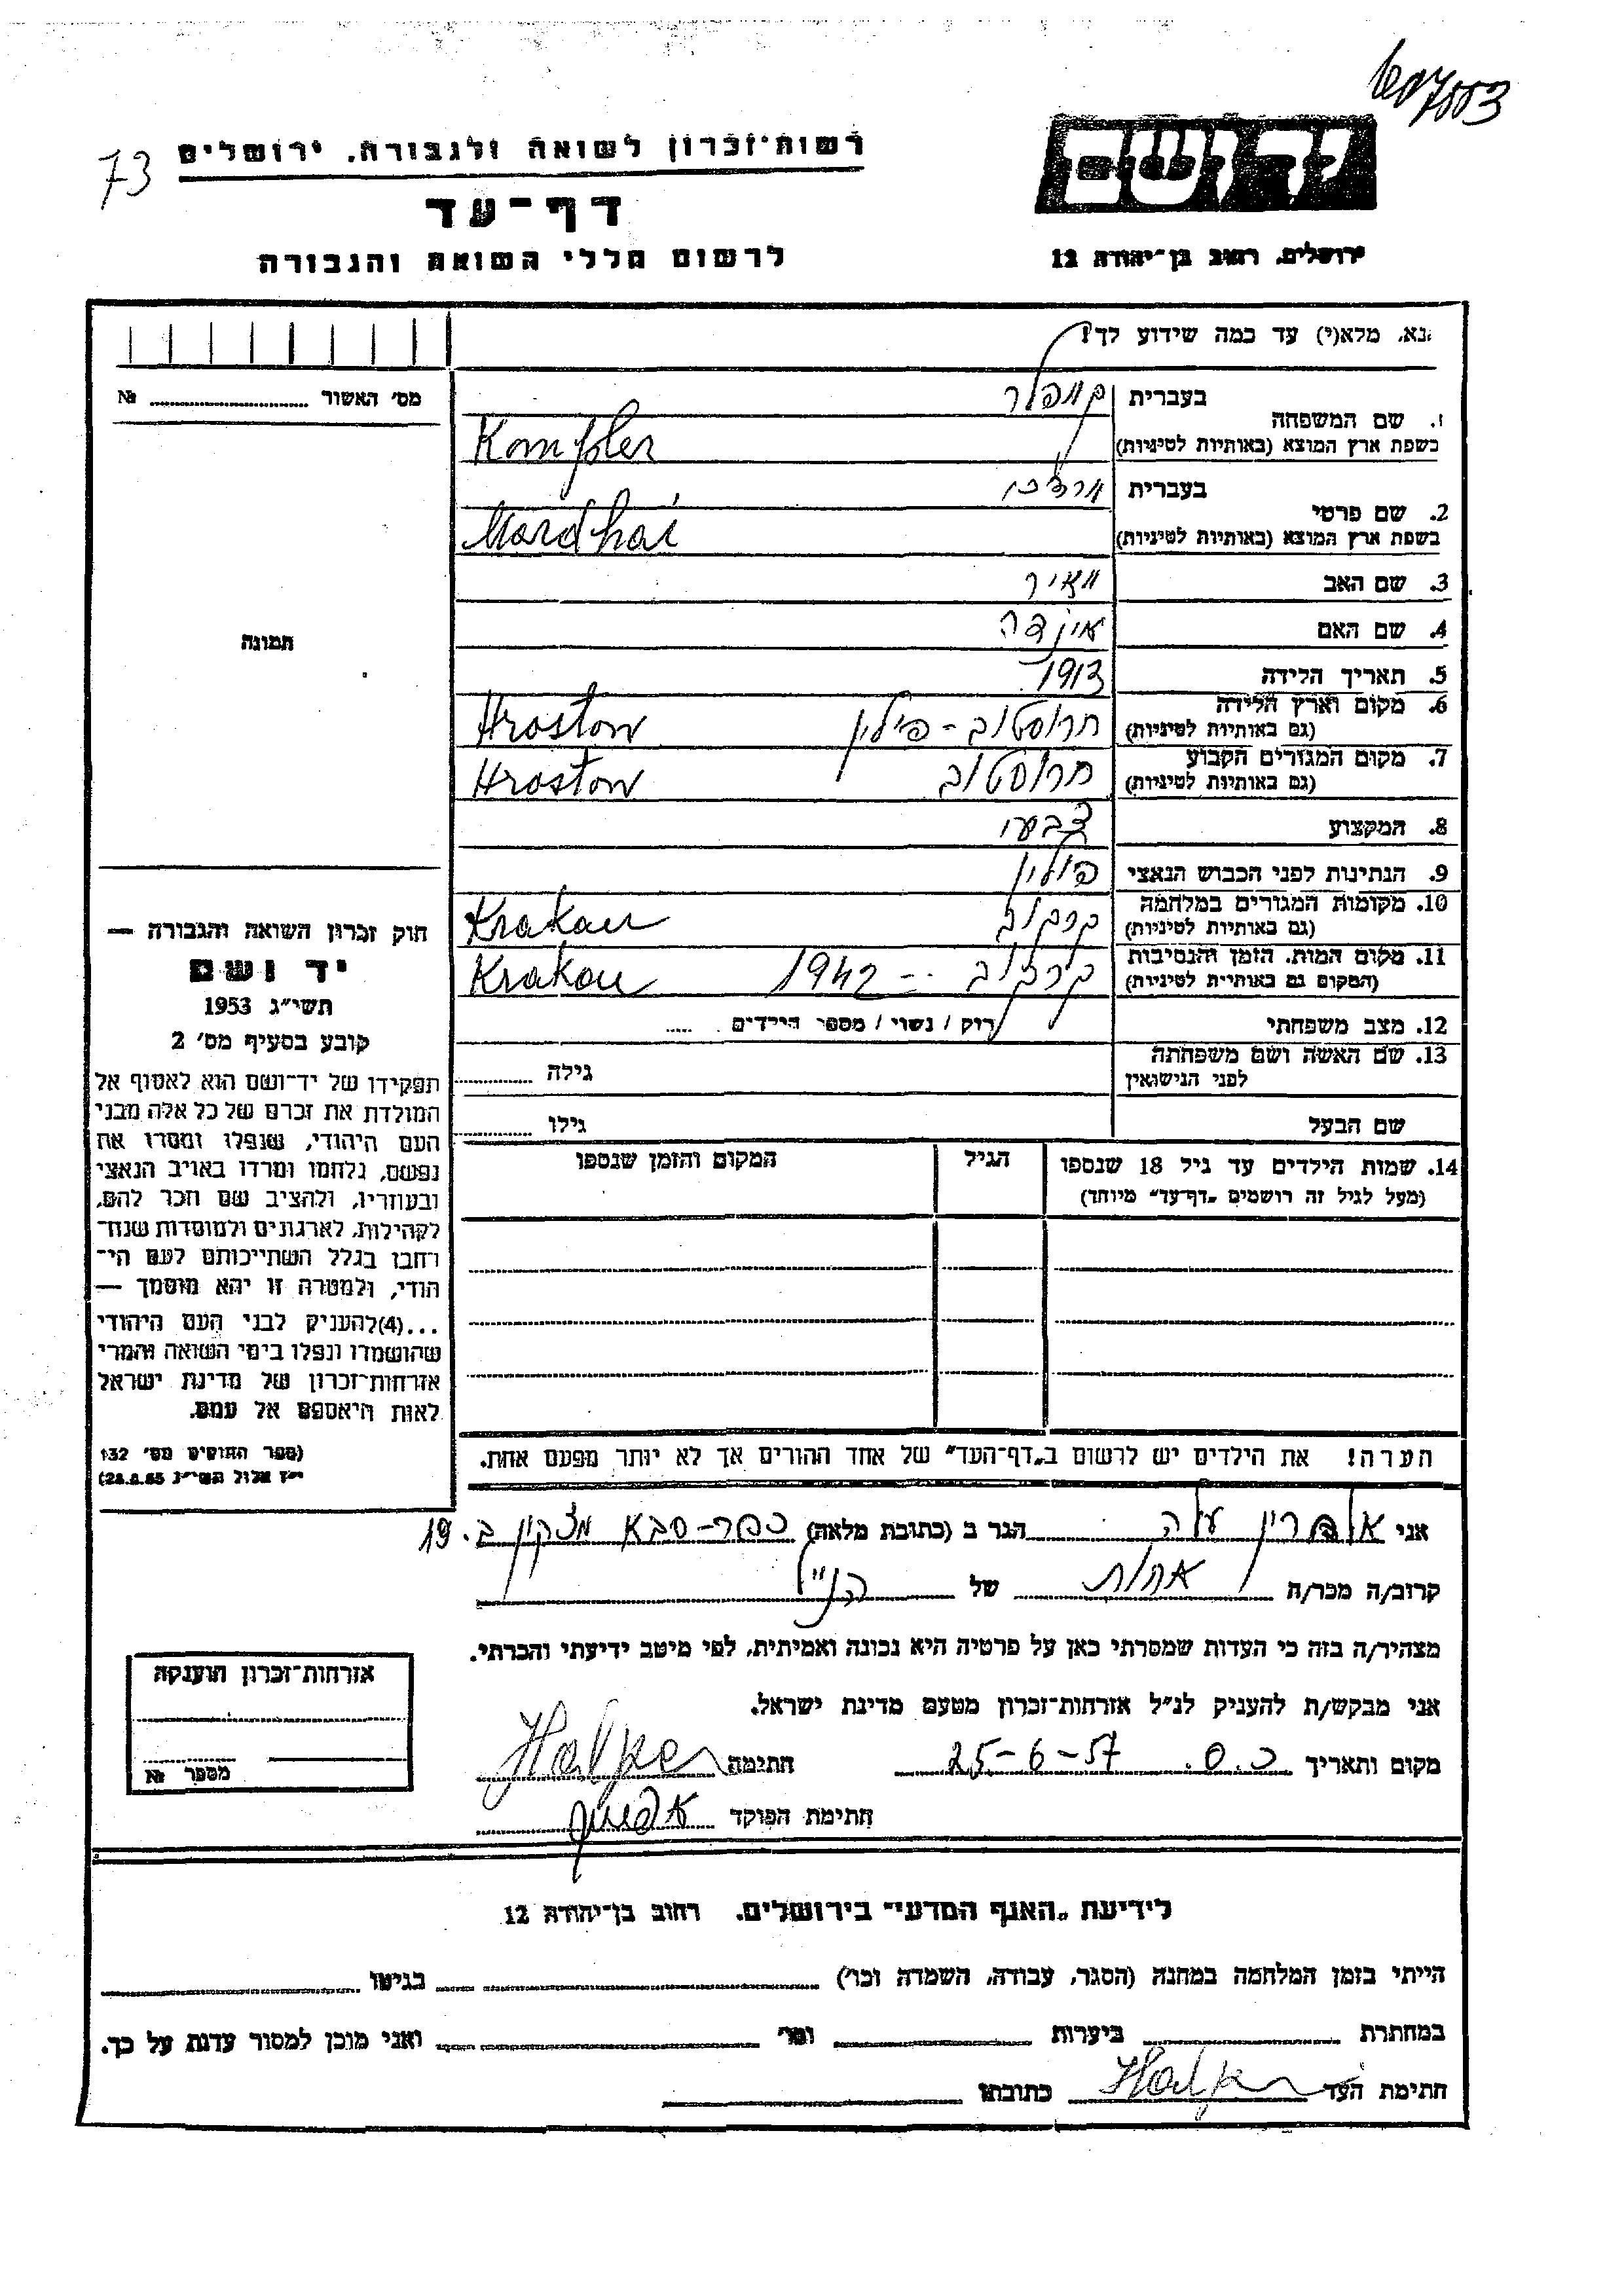 607/003
73
רשות-זכרון לשואה ולגבורה, ירושלים
יד ושם
דף-עד
לרשום חללי השואה והגבורה
ירושלים, רחוב בן-יהודה 12
נא, מלא(י) עד כמה שידוע לך!
מס' האשור №
1. שם המשפחה
בעברית קומפלר
בשפת ארץ המוצא (באותיות לטיניות) Kompler
2. שם פרטי
בעברית מרדכי
בשפת ארץ המוצא (באותיות לטיניות) Mordhai
3. שם האב מאיר
4. שם האם
5. תאריך הלידה 1913
6. מקום וארץ הלידה
(גם באותיות לטיניות) חרוסטוב - פולין Hrostow
7. מקום המגורים הקבוע
(גם באותיות לטיניות) חרוסטוב Hrostow
8. המקצוע צבעי
9. הנתינות לפני הכבוש הנאצי פולין
10. מקומות המגורים במלחמה
(גם באותיות לטיניות) קרקוב Krakau
11. מקום המות, הזמן והנסיבות
(המקום גם באותיות לטיניות) קרקוב -- 1942 Krakau
12. מצב משפחתי רוק / נשוי / מספר הילדים
13. שם האשה ושם משפחתה
לפני הנישואין גילה
שם הבעל גילו
14. שמות הילדים עד גיל 18 שנספו
(מעל לגיל זה רושמים "דף-עד" מיוחד)
הגיל
המקום והזמן שנספו
הערה! את הילדים יש לרשום ב"דף-העד" של אחד ההורים אך לא יותר מפעם אחת.
תמונה
חוק זכרון השואה והגבורה —
יד ושם
תשי"ג 1953
קובע בסעיף מס' 2
תפקידו של יד-ושם הוא לאסוף אל
המולדת את זכרם של כל אלה מבני
העם היהודי, שנפלו ומסרו את
נפשם, נלחמו ומרדו באויב הנאצי
ובעוזריו, ולהציב שם וזכר להם,
לקהילות, לארגונים ולמוסדות שנח-
רבו בגלל השתייכותם לעם הי-
הודי, ולמטרה זו יהא מוסמך —
...(4)להעניק לבני העם היהודי
שהושמדו ונפלו בימי השואה והמרי
אזרחות-זכרון של מדינת ישראל
לאות היאספם אל עמם.
(ספר החוקים מס' 132
י"ז אלול תשי"ג 28.8.53)
אני אלפרין הגר ב (כתובת מלאה) כפר-סבא ב. 19
קרוב/ה מכר/ה אחות של הנ"ל
מצהיר/ה בזה כי העדות שמסרתי כאן על פרטיה היא נכונה ואמיתית, לפי מיטב ידיעתי והכרתי.
אני מבקש/ת להעניק לנ"ל אזרחות-זכרון מטעם מדינת ישראל.
מקום ותאריך כ.ס. 25-6-57 חתימה Halper
חתימת הפוקד
אזרחות-זכרון הוענקה
מספר №
לידיעת "האגף המדעי" בירושלים. רחוב בן-יהודה 12
הייתי בזמן המלחמה במחנה (הסגר, עבודה, השמדה וכו') בגיטו
במחתרת ביערות וכו' ואני מוכן למסור עדות על כך.
חתימת העד Halper כתובתו